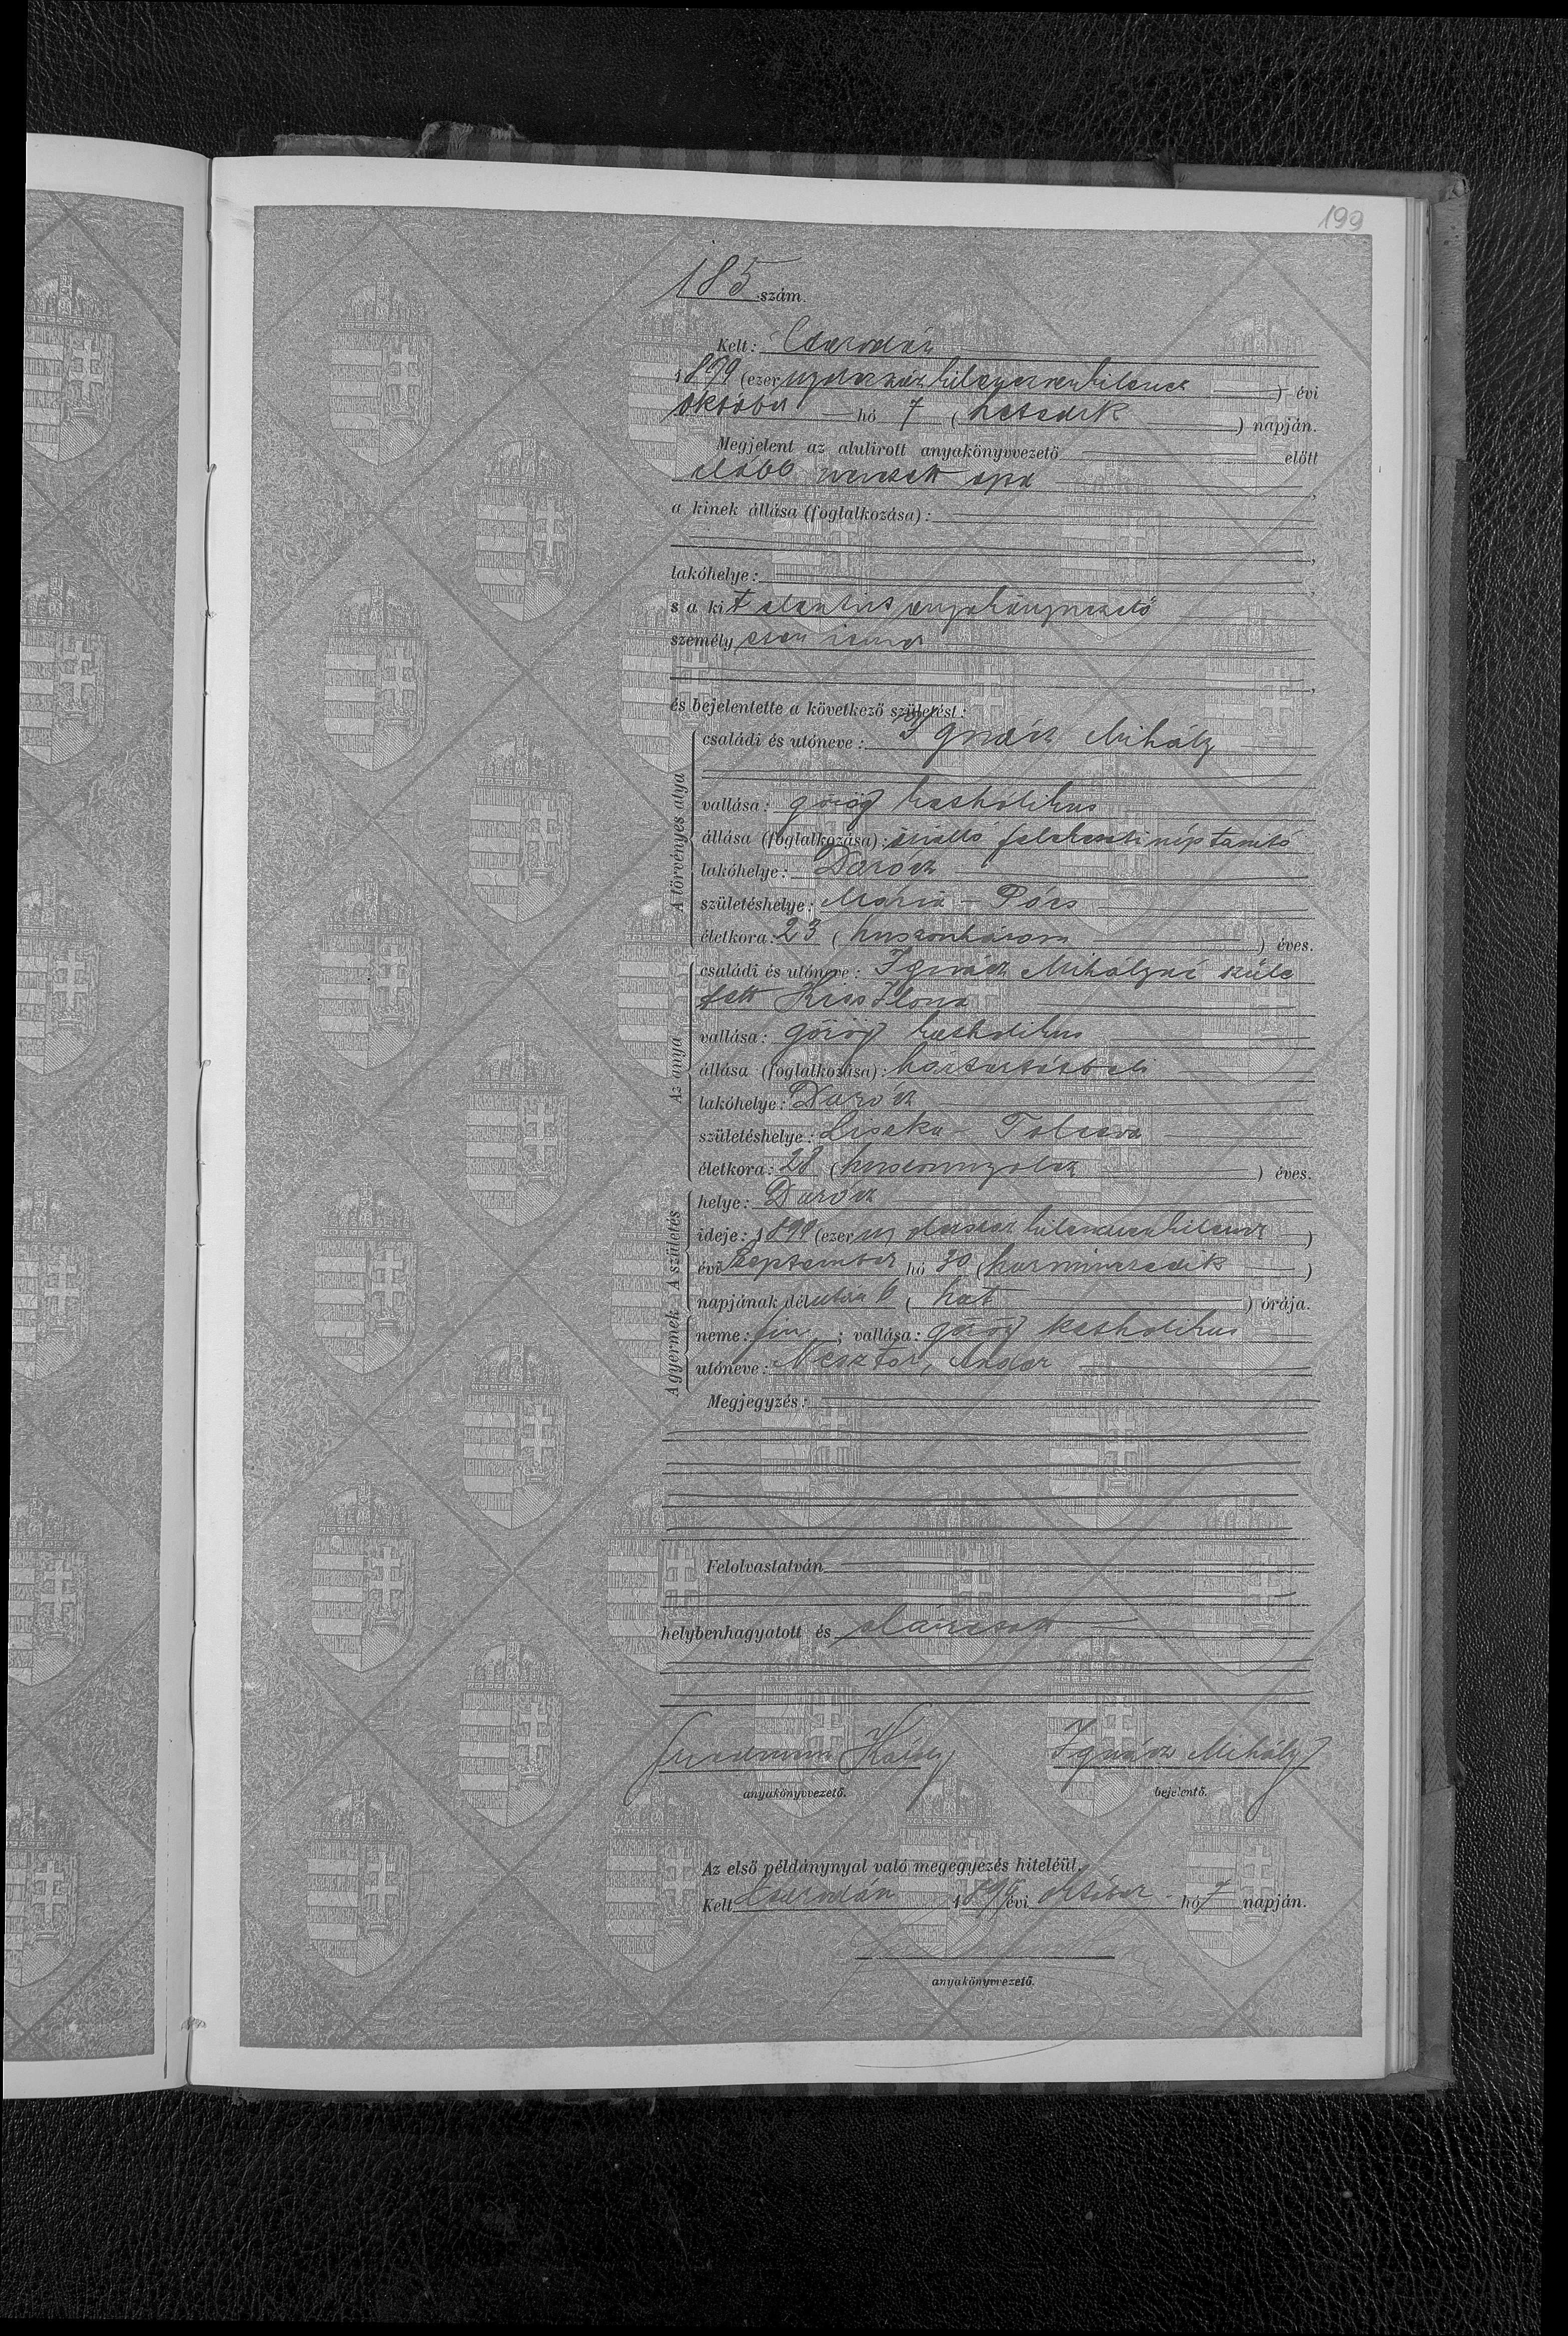 199
185 szám.
Kelt: Csarodán
1899 (ezernyolczszázkilenczvenkilencz) évi
október hó 7 (hetedik) napján.
Megjelent az alulirott anyakönyvvezető előtt
alább nevezett apa,
a kinek állása (foglalkozása):
lakóhelye:
s a kit alulirt anyakönyvvezető
személyesen ismer
és bejelentette a következő születést:
A törvényes atya
családi és utóneve: Ignácz Mihály
vallása: görög katholikus
állása (foglalkozása): önálló felekezeti néptanitó
lakóhelye: Darócz
születéshelye: Mária-Pócs
életkora: 23 (huszonhárom) éves.
Az anya
családi és utóneve: Ignácz Mihályné szüle
tett Kiss Ilona
vallása: görög katholikus
állása (foglalkozása): háztartásbeli
lakóhelye: Darócz
születéshelye: Liszka-Tolcsva
életkora: 28 (huszonnyolcz) éves.
A születés
helye: Darócz
ideje: 1899 (ezernyolczszázkilenczvenkilencz)
évi szeptember hó 30 (harminczadik)
napjának délután 6 (hat) órája.
A gyermek
neme: fiu; vallása: görög katholikus
utóneve: Nesztor, Andor
Megjegyzés:
Felolvastatván
helybenhagyatott és aláiratott
Károly Ignácz Mihály
anyakönyvvezető. bejelentő.
Az első példánynyal való megegyezés hiteléül.
Kelt Csarodán 1899 évi október hó 7 napján.
anyakönyvvezető.